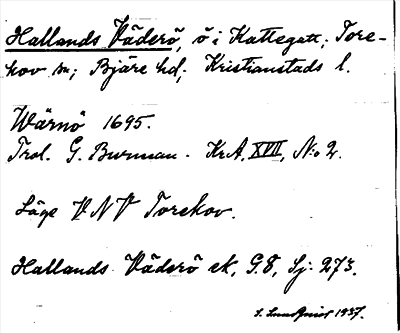 Hallands Väderö, ö i Kattegatt, Tore-
kov sn; Bjäre hd; Kristianstads l.
Wärnö 1695.
Trol. G. Burman. KrA, XVII, No 2.
Läge VNV Torekov.
Hallands Väderö ek, G.8, Sj: 273.
S. Lundquist 1937.